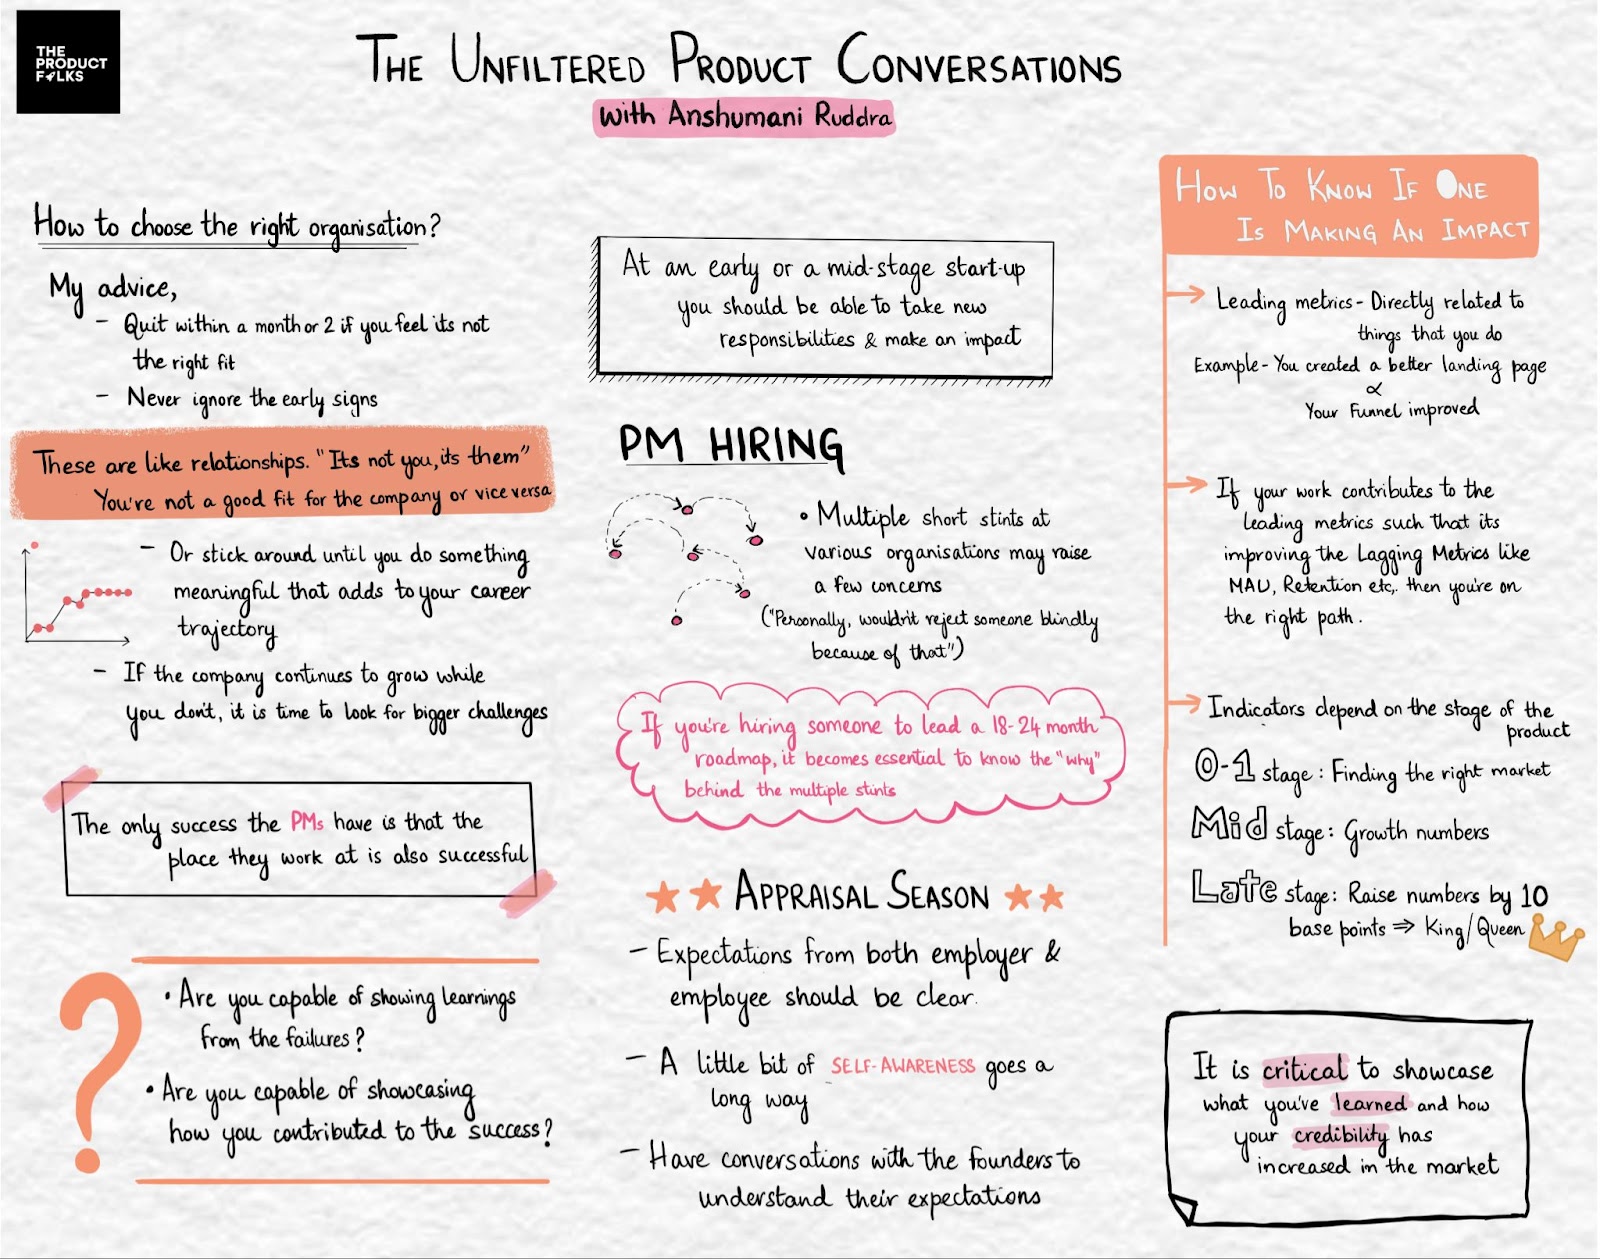 THE
PRODUCT
FOLKS
THE UNFILTERED PRODUCT CONVERSATIONS
with Anshumani Ruddra
How to choose the right organisation?
My advice,
- Quit within a month or 2 if you feel its not
the right fit
- Never ignore the early signs
These are like relationships. "Its not you, its them"
You're not a good fit for the company or vice versa
- Or stick around until you do something
meaningful that adds to your career
trajectory
- If the company continues to grow while
you don't, it is time to look for bigger challenges
The only success the PMs have is that the
place they work at is also successful
?
• Are you capable of showing learnings
from the failures?
• Are you capable of showcasing
how you contributed to the success?
At an early or a mid-stage start-up
you should be able to take new
responsibilities & make an impact
PM HIRING
• Multiple short stints at
various organisations may raise
a few concerns
("Personally, wouldn't reject someone blindly
because of that")
If you're hiring someone to lead a 18-24 month
roadmap, it becomes essential to know the "why"
behind the multiple stints
APPRAISAL SEASON
- Expectations from both employer &
employee should be clear.
- A little bit of SELF-AWARENESS goes a
long way
- Have conversations with the founders to
understand their expectations
HOW TO KNOW IF ONE
IS MAKING AN IMPACT
Leading metrics - Directly related to
things that you do
Example - You created a better landing page
∝
Your Funnel improved
If your work contributes to the
leading metrics such that its
improving the Lagging Metrics like
MAU, Retention etc,. then you're on
the right path.
Indicators depend on the stage of the
product
0-1 stage: Finding the right market
Mid stage: Growth numbers
Late stage: Raise numbers by 10
base points ⇒ King/Queen
It is critical to showcase
what you've learned and how
your credibility has
increased in the market